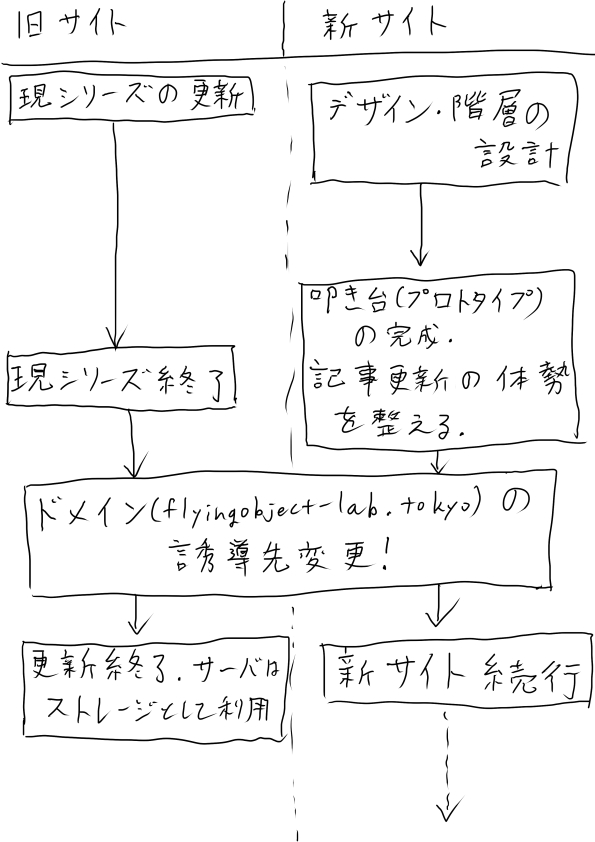 旧サイト
新サイト
現シリーズの更新
デザイン・階層の
設計
叩き台(プロトタイプ)
の完成.
記事更新の体勢
を整える.
現シリーズ終了
ドメイン(flyingobject-lab.tokyo)の
誘導先変更!
更新終了.サーバは
ストレージとして利用
新サイト続行